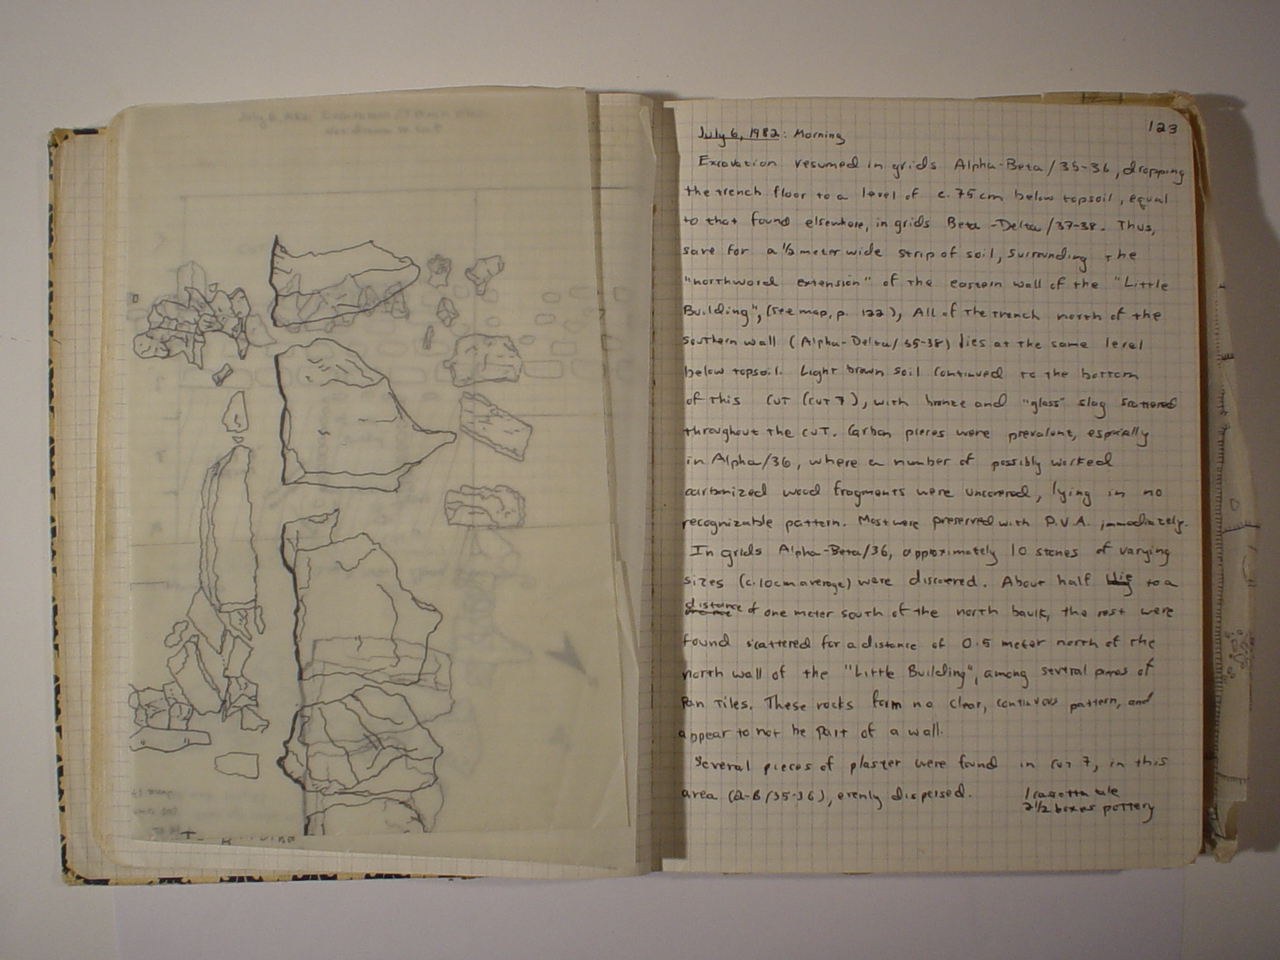 123
July 6, 1982: Morning
Excavation resumed in grids Alpha-Beta/35-36, dropping
the trench floor to a level of c. 75 cm below topsoil, equal
to that found elsewhere, in grids Beta-Delta/37-38. Thus,
save for a 1/2 meter wide strip of soil, surrounding the
"northward extension" of the eastern wall of the "Little
Building", (see map, p. 122), All of the trench north of the
southern wall (Alpha-Delta/35-38) lies at the same level
below topsoil. Light brown soil continued to the bottom
of this cut (cut 7), with bronze and "glass" slag scattered
throughout the cut. Carbon pieces were prevalent, especially
in Alpha/36, where a number of possibly worked
carbonized wood fragments were uncovered, lying in no
recognizable pattern. Most were preserved with P.V.A. immediately.
In grids Alpha-Beta/36, approximately 10 stones of varying
sizes (c. 10cm average) were discovered. About half lie to a
distance of one meter south of the north baulk, the rest were
found scattered for a distance of 0.5 meter north of the
north wall of the "Little Building", among several pieces of
Pan Tiles. These rocks form no clear, continuous pattern, and
appear to not be part of a wall.
Several pieces of plaster were found in cut 7, in this
area (A-B/35-36), evenly dispersed.
1 cassetta tile
2 1/2 boxes pottery